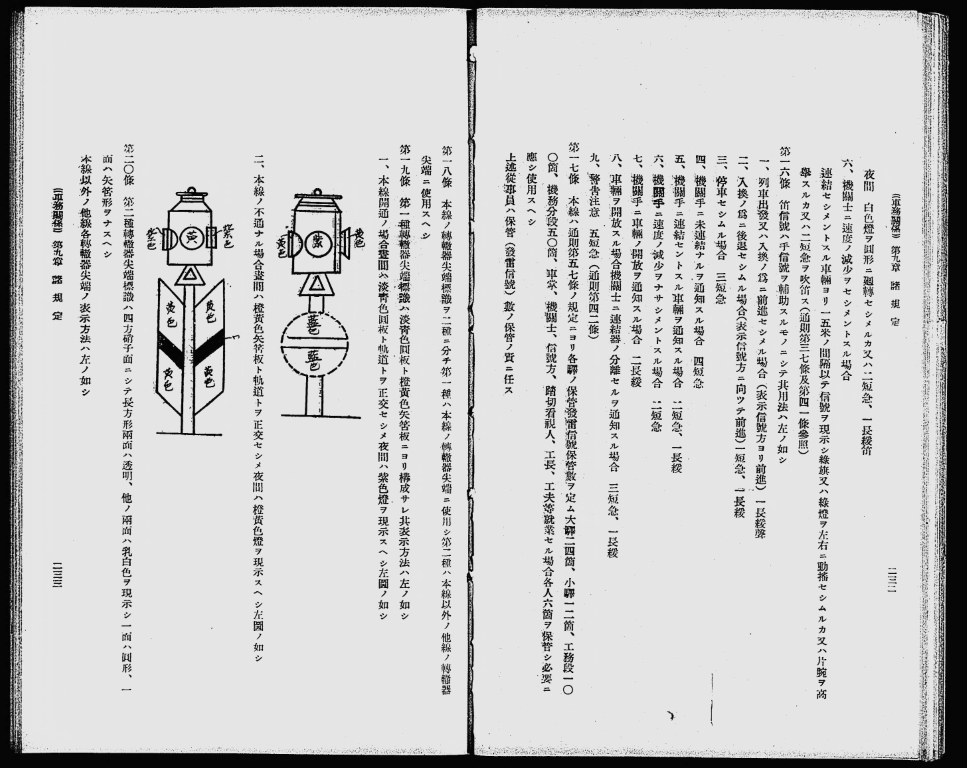 (車務關係) 第九章 諸規定
夜間 白色燈ヲ圓形ニ廻轉セシメルカ又ハ二短急、一長緩笛
六、機關士ニ速度ノ減少ヲセシメントスル場合
連結セシメントスル車輛ヨリ一五米ノ間隔以テ信號ヲ現示シ綠旗又ハ綠燈ヲ左右ニ動搖セシムルカ又ハ片腕ヲ高
擧スルカ又ハ二短急ヲ吹笛ス(通則第三七條及第四一條參照)
第一六條 笛信號ハ手信號ヲ輔助スルモノニシテ其用法ハ左ノ如シ
一、列車出發又ハ入換ノ爲ニ前進セシメル場合(表示信號方ヨリ前進)一長緩聲
二、入換ノ爲ニ後退セシムル場合(表示信號方ニ向ツテ前進)短急、一長緩
三、停車セシムル場合 三短急
四、機關手ニ未連結ナルヲ通知スル場合 四短急
五、機關手ニ連結セントスル車輛ヲ通知スル場合 二短急、一長緩
六、機關手ニ速度ノ減少ヲナサシメントスル場合 二短急
七、機關手ニ車輛ノ開放ヲ通知スル場合 二長緩
八、車輛ヲ開放スル場合機關士ニ連結器ノ分離セルヲ通知スル場合 三短急、一長緩
九、警告注意 五短急(通則第四二條)
第一七條 本線ハ通則第五七條ノ規定ニヨリ各驛ノ保管發雷信號保管數ヲ定ム大驛二四箇、小驛一二箇、工務段一〇
〇箇、機務分段五〇箇、車掌、機關士、信號方、踏切看視人、工長、工夫等就業セル場合各人六箇ヲ保管シ必要ニ
應シ使用スヘシ
上述從事員ハ保管(發雷信號)數ノ保管ノ責ニ任ス
第一八條 本線ノ轉轍器尖端標識ヲ二種ニ分チ第一種ハ本線ノ轉轍器尖端ニ使用シ第二種ハ本線以外ノ他線ノ轉轍器
尖端ニ使用スヘシ
第一九條 第一種轉轍器尖端標識ハ淡靑色圓板ト橙黃色矢筈板ニヨリ構成サレ其表示方法ハ左ノ如シ
一、本線開通ノ場合晝間ハ淡靑色圓板ト軌道トヲ正交セシメ夜間ハ紫色燈ヲ現示スヘシ左圖ノ如シ
黃色
紫
黃色
藍色
藍色
二、本線ノ不通ナル場合晝間ハ橙黃色矢筈板ト軌道トヲ正交セシメ夜間ハ橙黃色燈ヲ現示スヘシ左圖ノ如シ
紫色
黃
紫色
黃色
黃色
黃色
黃色
第二〇條 第二種轉轍器尖端標識ハ四方硝子面ニシテ長方形兩面ハ透明、他ノ兩面ハ乳白色ヲ現示シ一面ハ圓形、一
面ハ矢筈形ヲナスヘシ
本線以外ノ他線各轉轍器尖端ノ表示方法ハ左ノ如シ
(車務關係) 第九章 諸規定